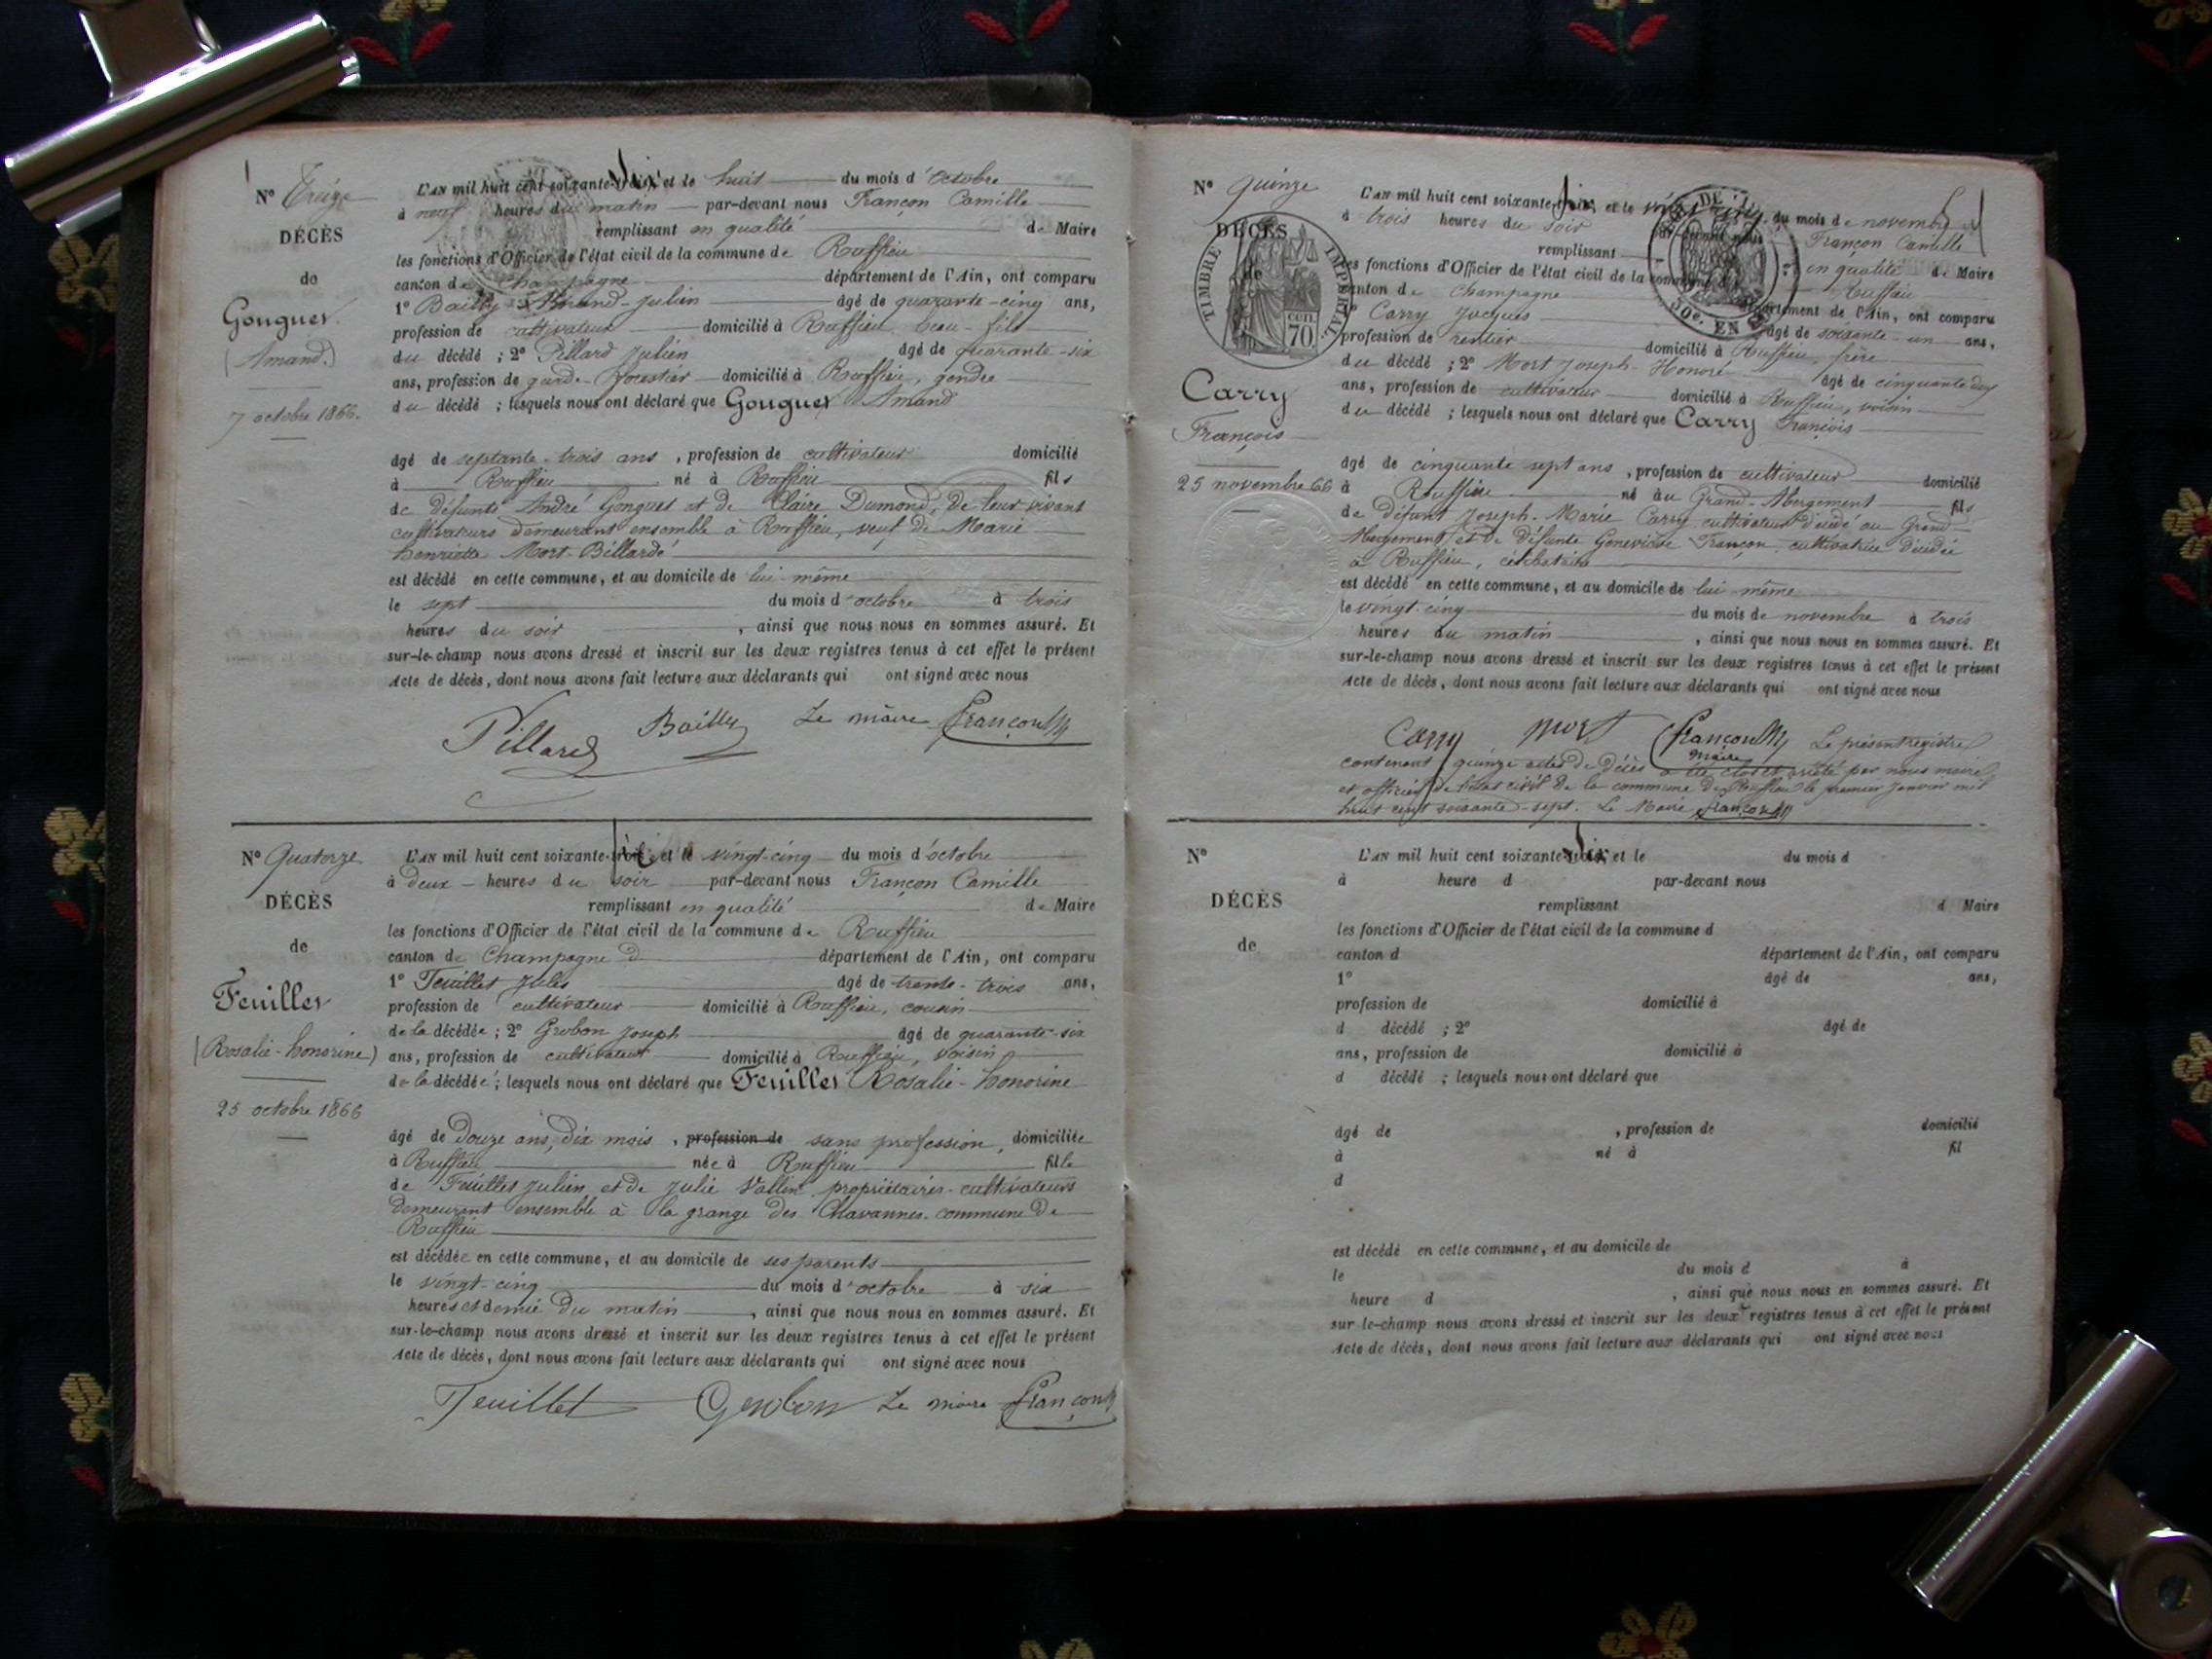 N° Treize
DÉCÈS
de
Gonguet
(Amand.)
7 octobre 1866.
L'AN mil huit cent soixante-six et le huit du mois d'octobre
à neuf heures du matin par-devant nous Françon Camille
remplissant en qualité de Maire
les fonctions d'Officier de l'état civil de la commune de Ruffieu
canton de Champagne département de l'Ain, ont comparu
1° Bailly Amand-Julien âgé de quarante-cinq ans,
profession de cultivateur domicilié à Ruffieu, beau-fils
du décédé ; 2° Pillard Julien âgé de quarante-six
ans, profession de garde-forestier domicilié à Ruffieu, gendre
du décédé ; lesquels nous ont déclaré que Gonguet Amand
âgé de septante-trois ans, profession de cultivateur domicilié
à Ruffieu né à Ruffieu fils
de défunts André Gonguet et de Claire Dumond, de leur vivant
cultivateurs demeurant ensemble à Ruffieu, veuf de Marie
henriette Mort-Béllardé
est décédé en cette commune, et au domicile de lui-même
le sept du mois d'octobre à trois
heures du soir, ainsi que nous nous en sommes assuré. Et
sur-le-champ nous avons dressé et inscrit sur les deux registres tenus à cet effet le présent
Acte de décès, dont nous avons fait lecture aux déclarants qui ont signé avec nous
Pillard Bailly Le maire Françon
N° Quatorze
DÉCÈS
de
Feuillet
(Rosalie-honorine)
25 octobre 1866
L'AN mil huit cent soixante-six et le vingt-cinq du mois d'octobre
à deux heures du soir par-devant nous Françon Camille
remplissant en qualité de Maire
les fonctions d'Officier de l'état civil de la commune de Ruffieu
canton de Champagne département de l'Ain, ont comparu
1° Feuillet Jules âgé de trente-trois ans,
profession de cultivateur domicilié à Ruffieu, cousin
de la décédée ; 2° Grobon Joseph âgé de quarante-six
ans, profession de cultivateur domicilié à Ruffieu, voisin
de la décédée ; lesquels nous ont déclaré que Feuillet Rosalie-honorine
âgé de douze ans, dix mois, profession de sans profession, domiciliée
à Ruffieu née à Ruffieu fille
de Feuillet Julien et de Julie Vallin, propriétaires-cultivateurs
demeurant ensemble à la grange des Chavannes, commune de
Ruffieu
est décédée en cette commune, et au domicile de ses parents
le vingt-cinq du mois d'octobre à six
heures et demie du matin, ainsi que nous nous en sommes assuré. Et
sur-le-champ nous avons dressé et inscrit sur les deux registres tenus à cet effet le présent
Acte de décès, dont nous avons fait lecture aux déclarants qui ont signé avec nous
Feuillet Grobon Le maire Françon
N° Quinze
DÉCÈS
de
TIMBRE IMPÉRIAL
70 cen.
Carry
François
25 novembre 66
L'AN mil huit cent soixante-six et le vingt-cinq du mois de novembre
à trois heures du soir par-devant nous Françon Camille
remplissant en qualité de Maire
les fonctions d'Officier de l'état civil de la commune de Ruffieu
canton de Champagne département de l'Ain, ont comparu
1° Carry Jacques âgé de soixante-un ans,
profession de rentier domicilié à Ruffieu, frère
du décédé ; 2° Mort Joseph-Honoré âgé de cinquante deux
ans, profession de cultivateur domicilié à Ruffieu, voisin
du décédé ; lesquels nous ont déclaré que Carry François
âgé de cinquante sept ans, profession de cultivateur domicilié
à Ruffieu né au Grand-Abergement fils
de défunt Joseph-Marie Carry cultivateur décédé au Grand-
Abergement et de défunte Geneviève Françon, cultivatrice décédée
à Ruffieu, célibataire
est décédé en cette commune, et au domicile de lui-même
le vingt-cinq du mois de novembre à trois
heures du matin, ainsi que nous nous en sommes assuré. Et
sur-le-champ nous avons dressé et inscrit sur les deux registres tenus à cet effet le présent
Acte de décès, dont nous avons fait lecture aux déclarants qui ont signé avec nous
Carry mort Françon maire Le présent registre
contenant quinze actes de décès a été clos et arrêté par nous maire
et officier de l'état civil de la commune de Ruffieu le premier janvier mil
huit cent soixante-sept. Le Maire Françon
N°
DÉCÈS
de
L'AN mil huit cent soixante-six et le du mois d
à heure d par-devant nous
remplissant d Maire
les fonctions d'Officier de l'état civil de la commune d
canton d département de l'Ain, ont comparu
1° âgé de ans,
profession de domicilié à
d décédé ; 2° âgé de
ans, profession de domicilié à
d décédé ; lesquels nous ont déclaré que
âgé de , profession de domicilié
à né à fil
d
est décédé en cette commune, et au domicile de
le du mois d à
heure d , ainsi que nous nous en sommes assuré. Et
sur-le-champ nous avons dressé et inscrit sur les deux registres tenus à cet effet le présent
Acte de décès, dont nous avons fait lecture aux déclarants qui ont signé avec nous